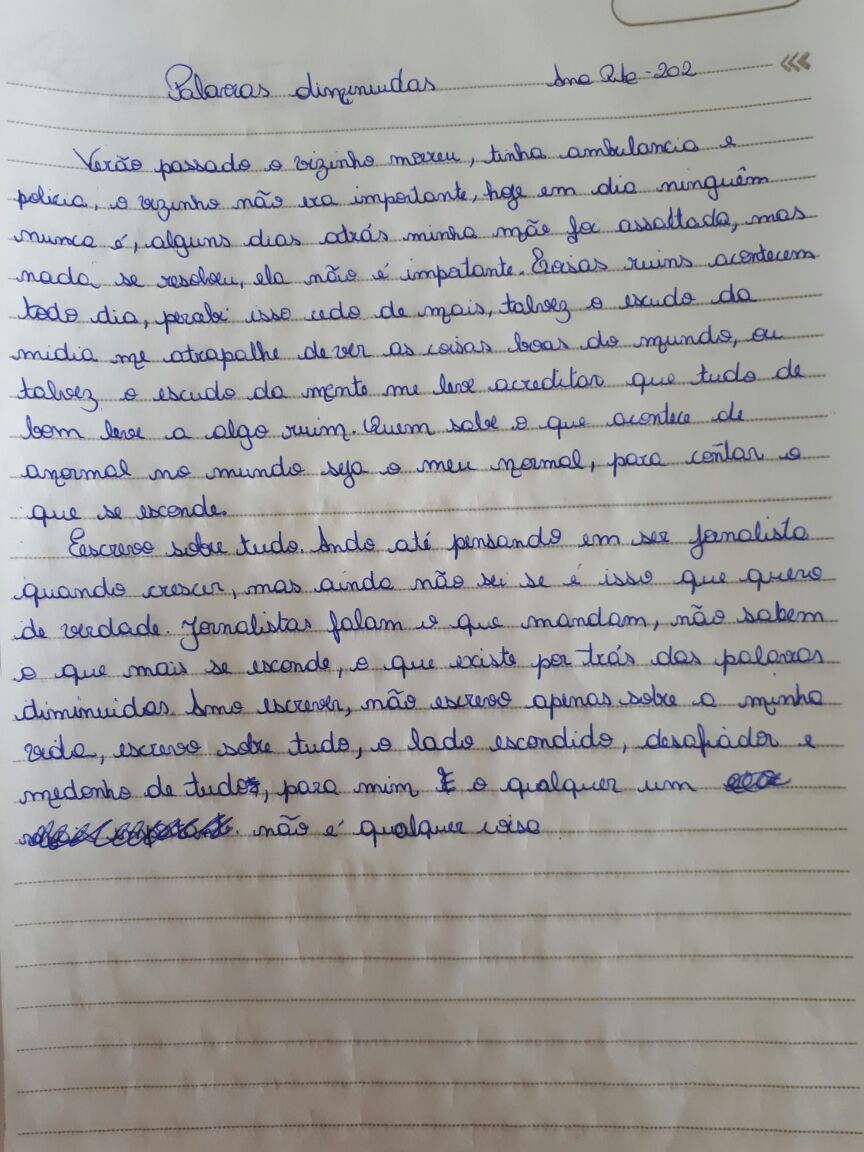 Palavras diminuidas Ana Rita - 202
Verão passado o vizinho morreu, tinha ambulancia e
policia, o vizinho não era importante, hoje em dia ninguêm
nunca é, alguns dias atrás minha mãe foi assaltada, mas
nada se resolveu, ela não é importante. Coisas ruins acontecem
todo dia, percebi isso cedo de mais, talvez o escudo da
midia me atrapalhe de ver as coisas boas do mundo, ou
talvez o escudo da mente me leve acreditar que tudo de
bom leve a algo ruim. Quem sabe o que acontece de
anormal no mundo seja o meu normal, para contar o
que se esconde.
Escrevo sobre tudo. Ando até pensando em ser jornalista
quando crescer, mas ainda não sei se é isso que quero
de verdade. Jornalistas falam o que mandam, não sabem
o que mais se esconde, o que existe por trás das palavras
diminuidas. Amo escrever, não escrevo apenas sobre a minha
vida, escrevo sobre tudo, o lado escondido, desafiador e
medonho de tudo, para mim o qualquer um
não é qualquer coisa